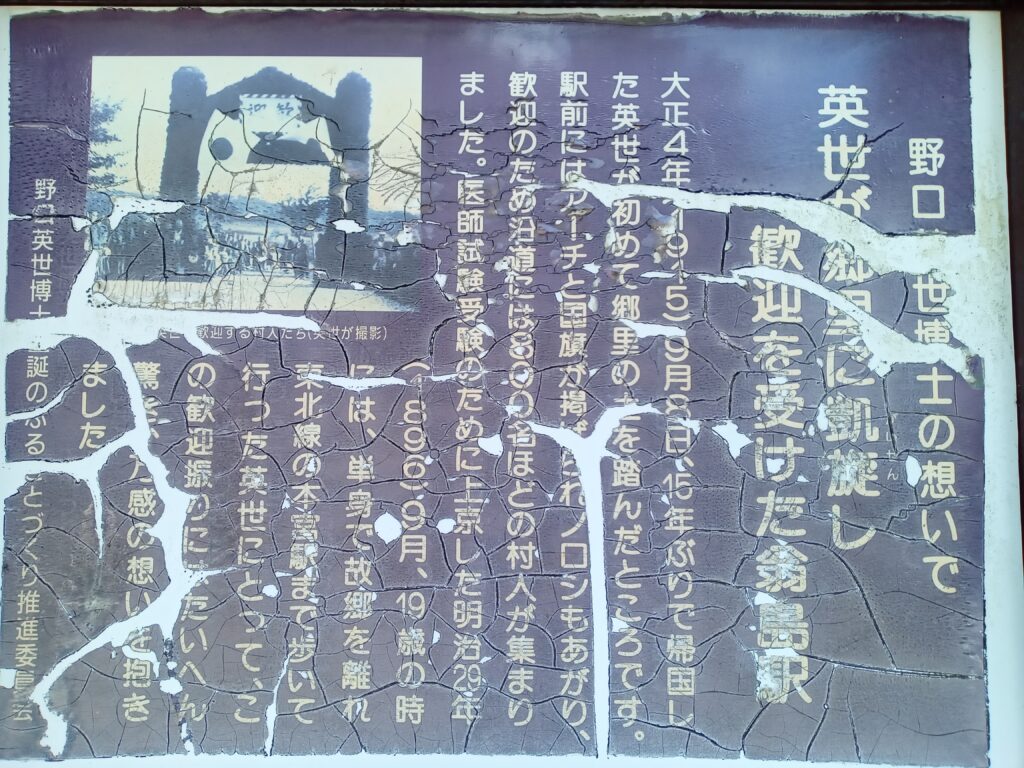 野口 世博士の想いで
英世が郷里に凱旋し
せん
歓迎を受けた翁島駅
大正4年(1915)9月8日、15年ぶりで帰国し
た英世が初めて郷里の土を踏んだところです。
駅前にはアーチと国旗が掲げられノロシもあがり、
歓迎のため沿道には800名ほどの村人が集まり
ました。医師試験受験のために上京した明治29年
(1896)9月、19歳の時
には、単身で故郷を離れ
東北線の本宮駅まで歩いて
行った英世にとって、こ
の歓迎振りにはたいへん
驚き、 た感の想いを抱き
ました
歓迎
歓迎する村人たち(英世が撮影)
野口英世博士 誕のふるさとづくり推進委員会